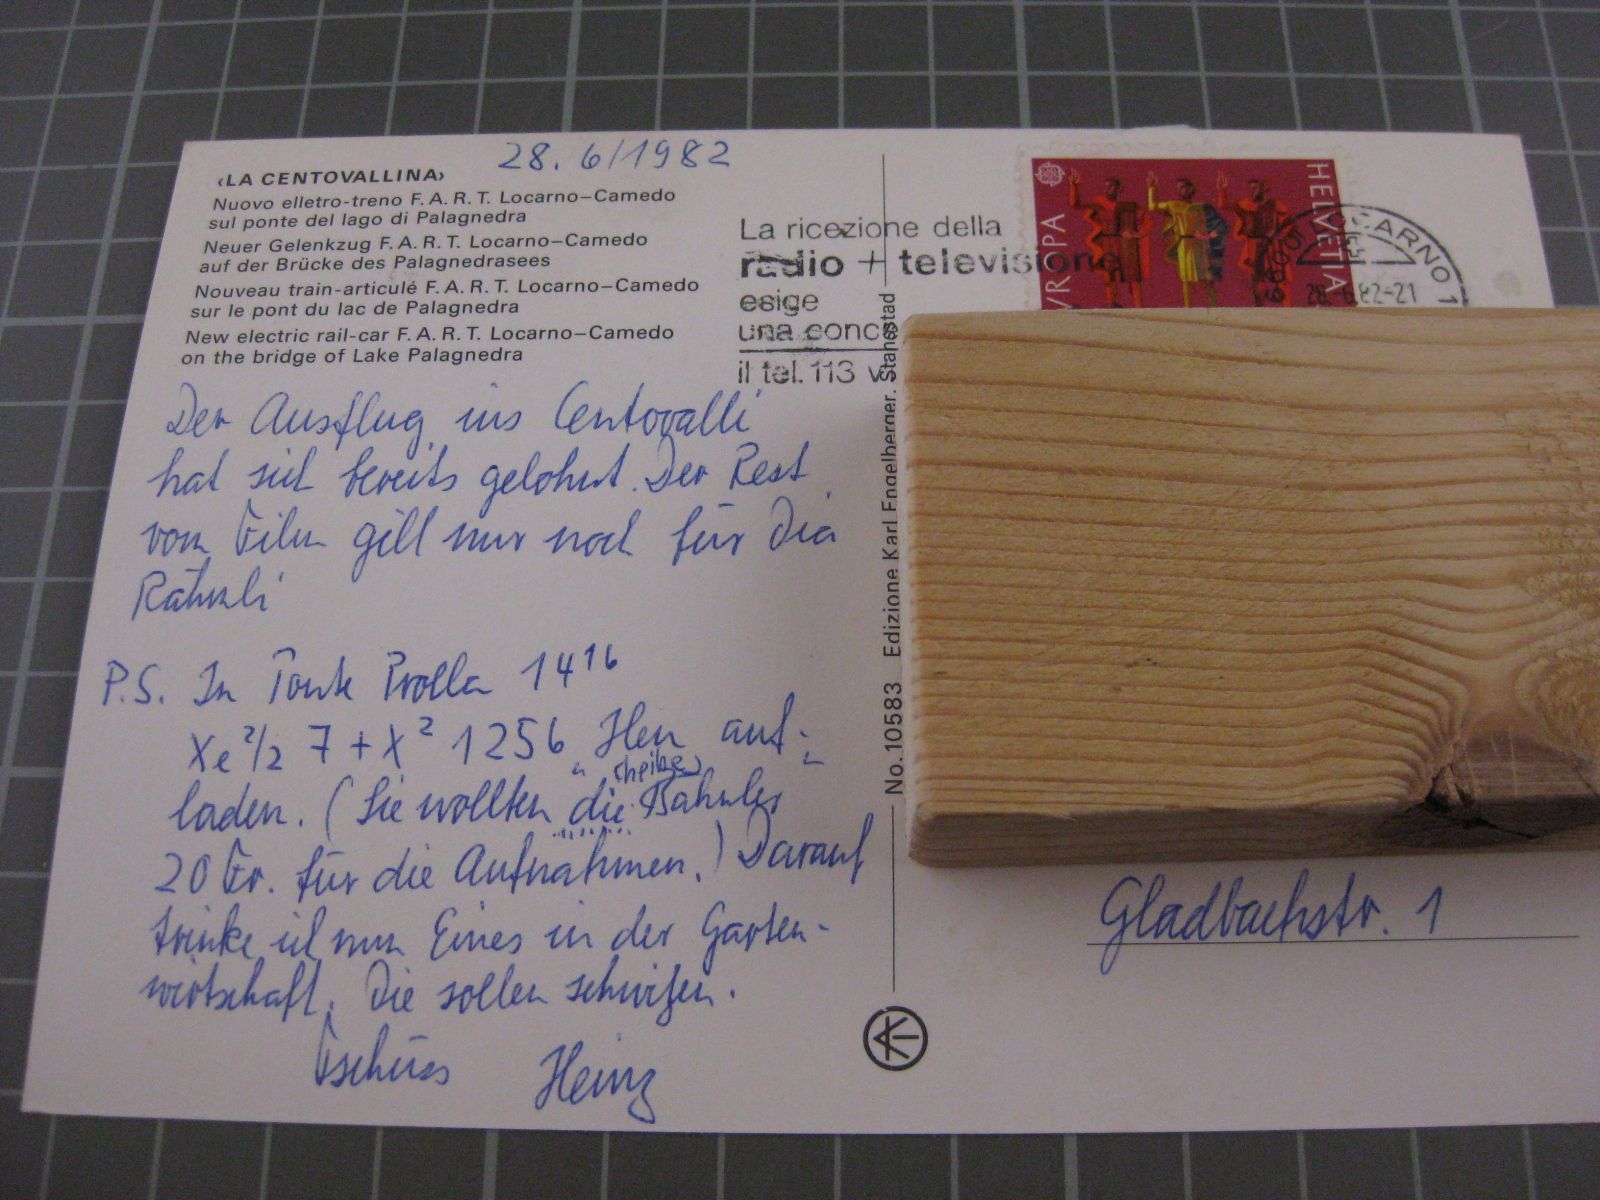 28. 6/1982
‹LA CENTOVALLINA›
Nuovo elletro-treno F.A.R.T. Locarno–Camedo
sul ponte del lago di Palagnedra
Neuer Gelenkzug F.A.R.T. Locarno–Camedo
auf der Brücke des Palagnedrasees
Nouveau train-articulé F.A.R.T. Locarno–Camedo
sur le pont du lac de Palagnedra
New electric rail-car F.A.R.T. Locarno–Camedo
on the bridge of Lake Palagnedra
Der Ausflug ins Centovalli
hat sich bereits gelohnt. Der Rest
vom Film gilt nur noch für Dia
P.S. In Ponte Brolla 14¹⁶
Xe 2/2 7 + X² 1256 Heu auf-
laden. (Sie wollten die (cheibe) Bähnler
20 Fr. für die Aufnahmen.) Darauf
trinke ich nun Eines in der Garten-
wirtschaft. Die sollen schwitzen.
Tschüss Heinz
La ricezione della
radio + televisione
esige
una conc
il tel. 113 v
EVROPA
HELVETIA
LOCARNO 1
28.-6.82-21
No. 10583 Edizione Karl Engelberger, Stansstad
Gladbachstr. 1